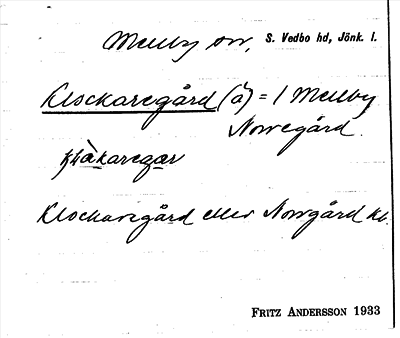 Mellby sn, S. Vedbo hd, Jönk. l.
Klockaregård (å) = 1 Mellby
Norregård.
klåkaregar
Klockaregård eller Norrgård kb.
FRITZ ANDERSSON 1933